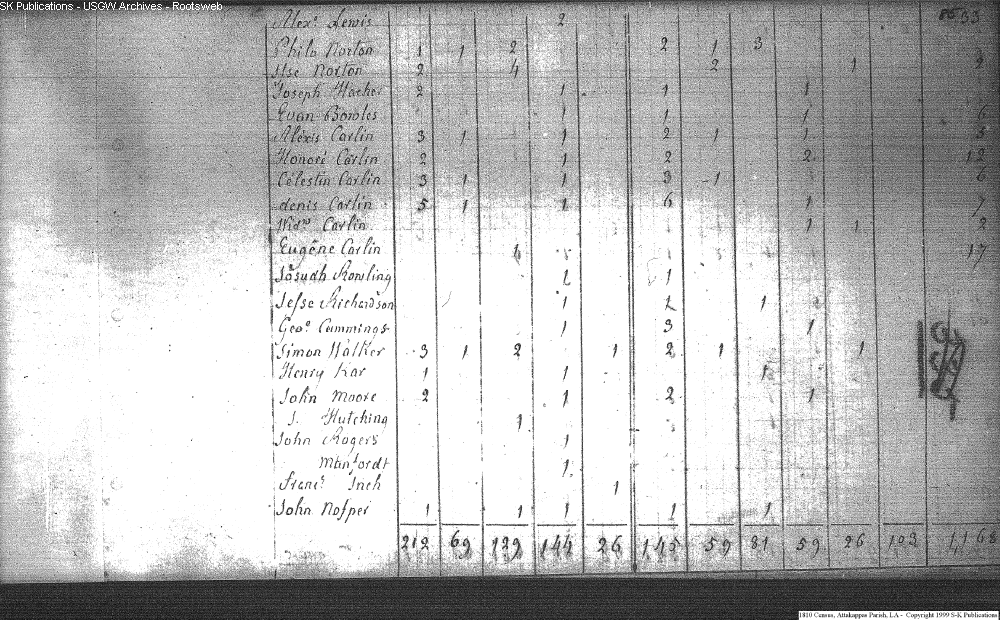 SK Publications - USGW Archives - Rootsweb
Alexr. Lewis 2 33
Philo Norton 1 1 2 2 1 3
Norton 2 4 2 1 2
Joseph 2 1 1 1
Evan Bowles 1 1 1 6
Alexis Carlin 3 1 1 2 1 1 3
Honoré Carlin 2 1 2 2 12
Célestin Carlin 3 1 1 3 1 6
denis Carlin 5 1 1 6 1 7
Widw. Carlin 1 1 2
Eugêne Carlin 17
Rowling 1
Jesse Richardson 1 1
Geoe. Cummings 1 3 1
Simon Walker 3 1 2 1 2 1 1
Henry Kar 1 1 1
John Moore 2 1 2 1
J. Hutching 1
John Rogers 1
1
Inch 1
John Nosper 1 1 1 1 1
212 69 129 144 26 145 59 81 59 26 103 1,168
1810 Census, Attakappas Parish, LA - Copyright 1999 S-K Publications